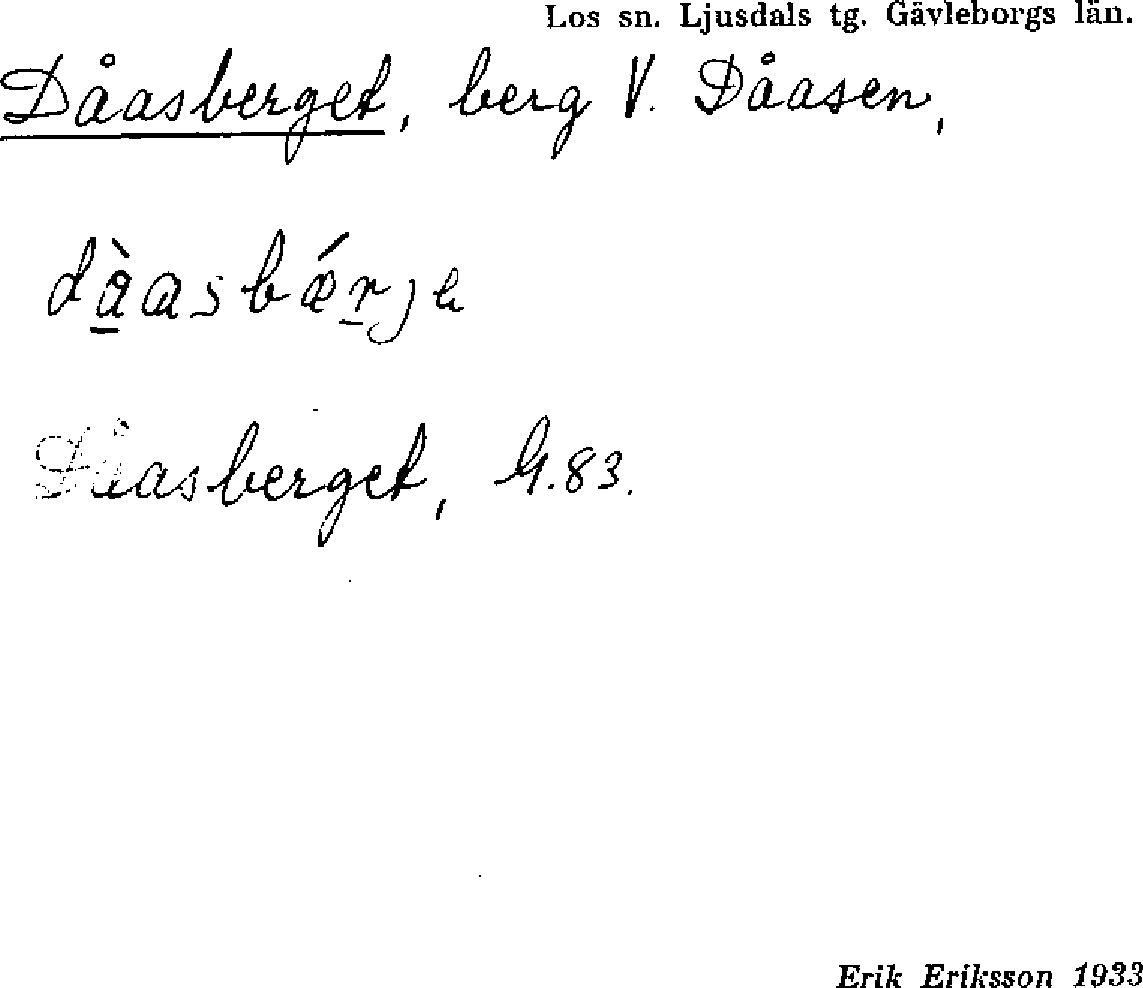 Los sn. Ljusdals tg. Gävleborgs län.
Dåasberget, berg V. Dåasen,
Dåasberget, G. 83.
Erik Eriksson 1933